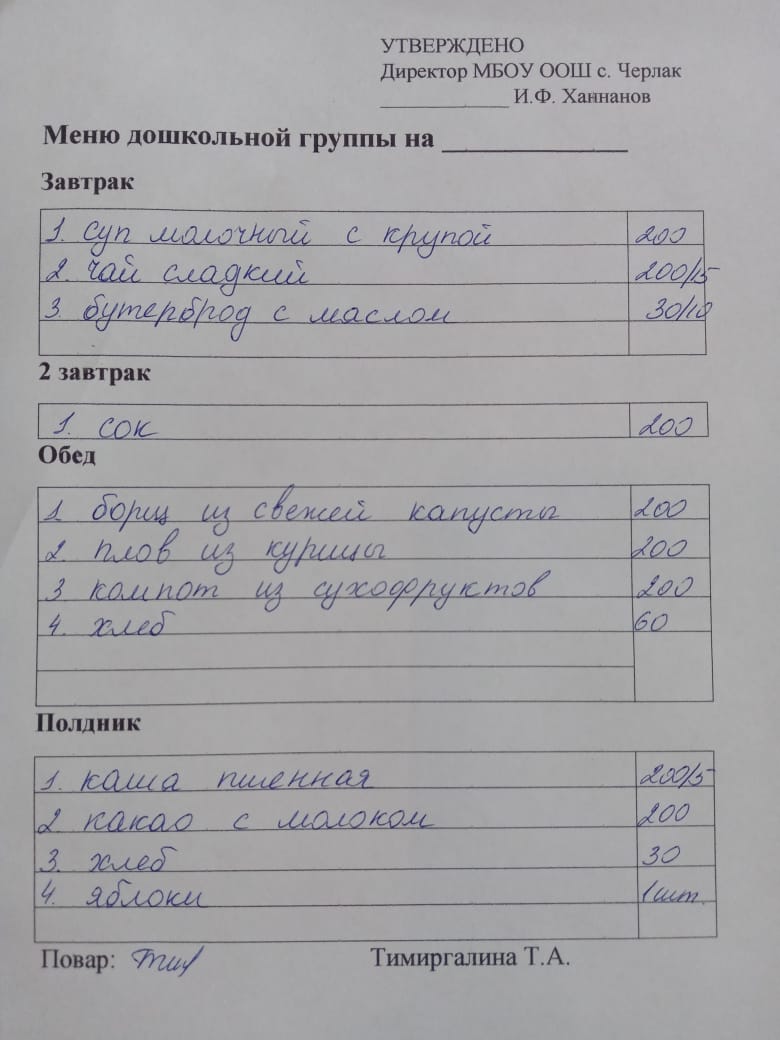 УТВЕРЖДЕНО
Директор МБОУ ООШ с. Черлак
____________ И.Ф. Ханнанов
Меню дошкольной группы на _____________
Завтрак
1. суп молочный с крупой 200
2. чай сладкий 200/15
3. бутерброд с маслом 30/10
2 завтрак
1. сок 200
Обед
1 борщ из свежей капусты 200
2 плов из курицы 200
3 компот из сухофруктов 200
4. хлеб 60
Полдник
1. каша пшенная 200/5
2 какао с молоком 200
3. хлеб 30
4. яблоки 1 шт.
Повар: Тимиргалина Т.А.